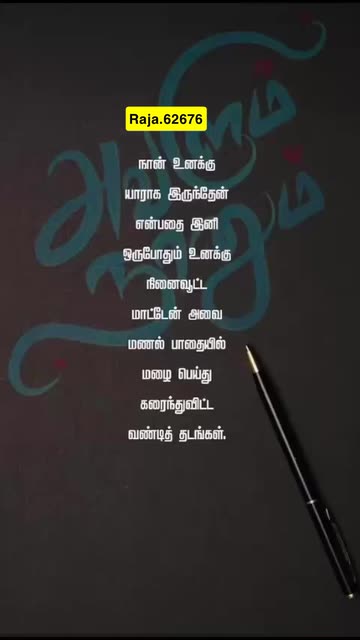 Raja.62676
அவளும்
நானும்
நான் உனக்கு
யாராக இருந்தேன்
என்பதை இனி
ஒருபோதும் உனக்கு
நினைவூட்ட
மாட்டேன் அவை
மணல் பாதையில்
மழை பெய்து
கரைந்துவிட்ட
வண்டித் தடங்கள்.